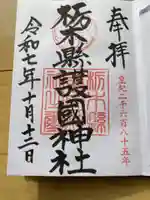 奉拝
皇紀二千六百八十五年
栃木縣護國神社
令和七年十月十三日